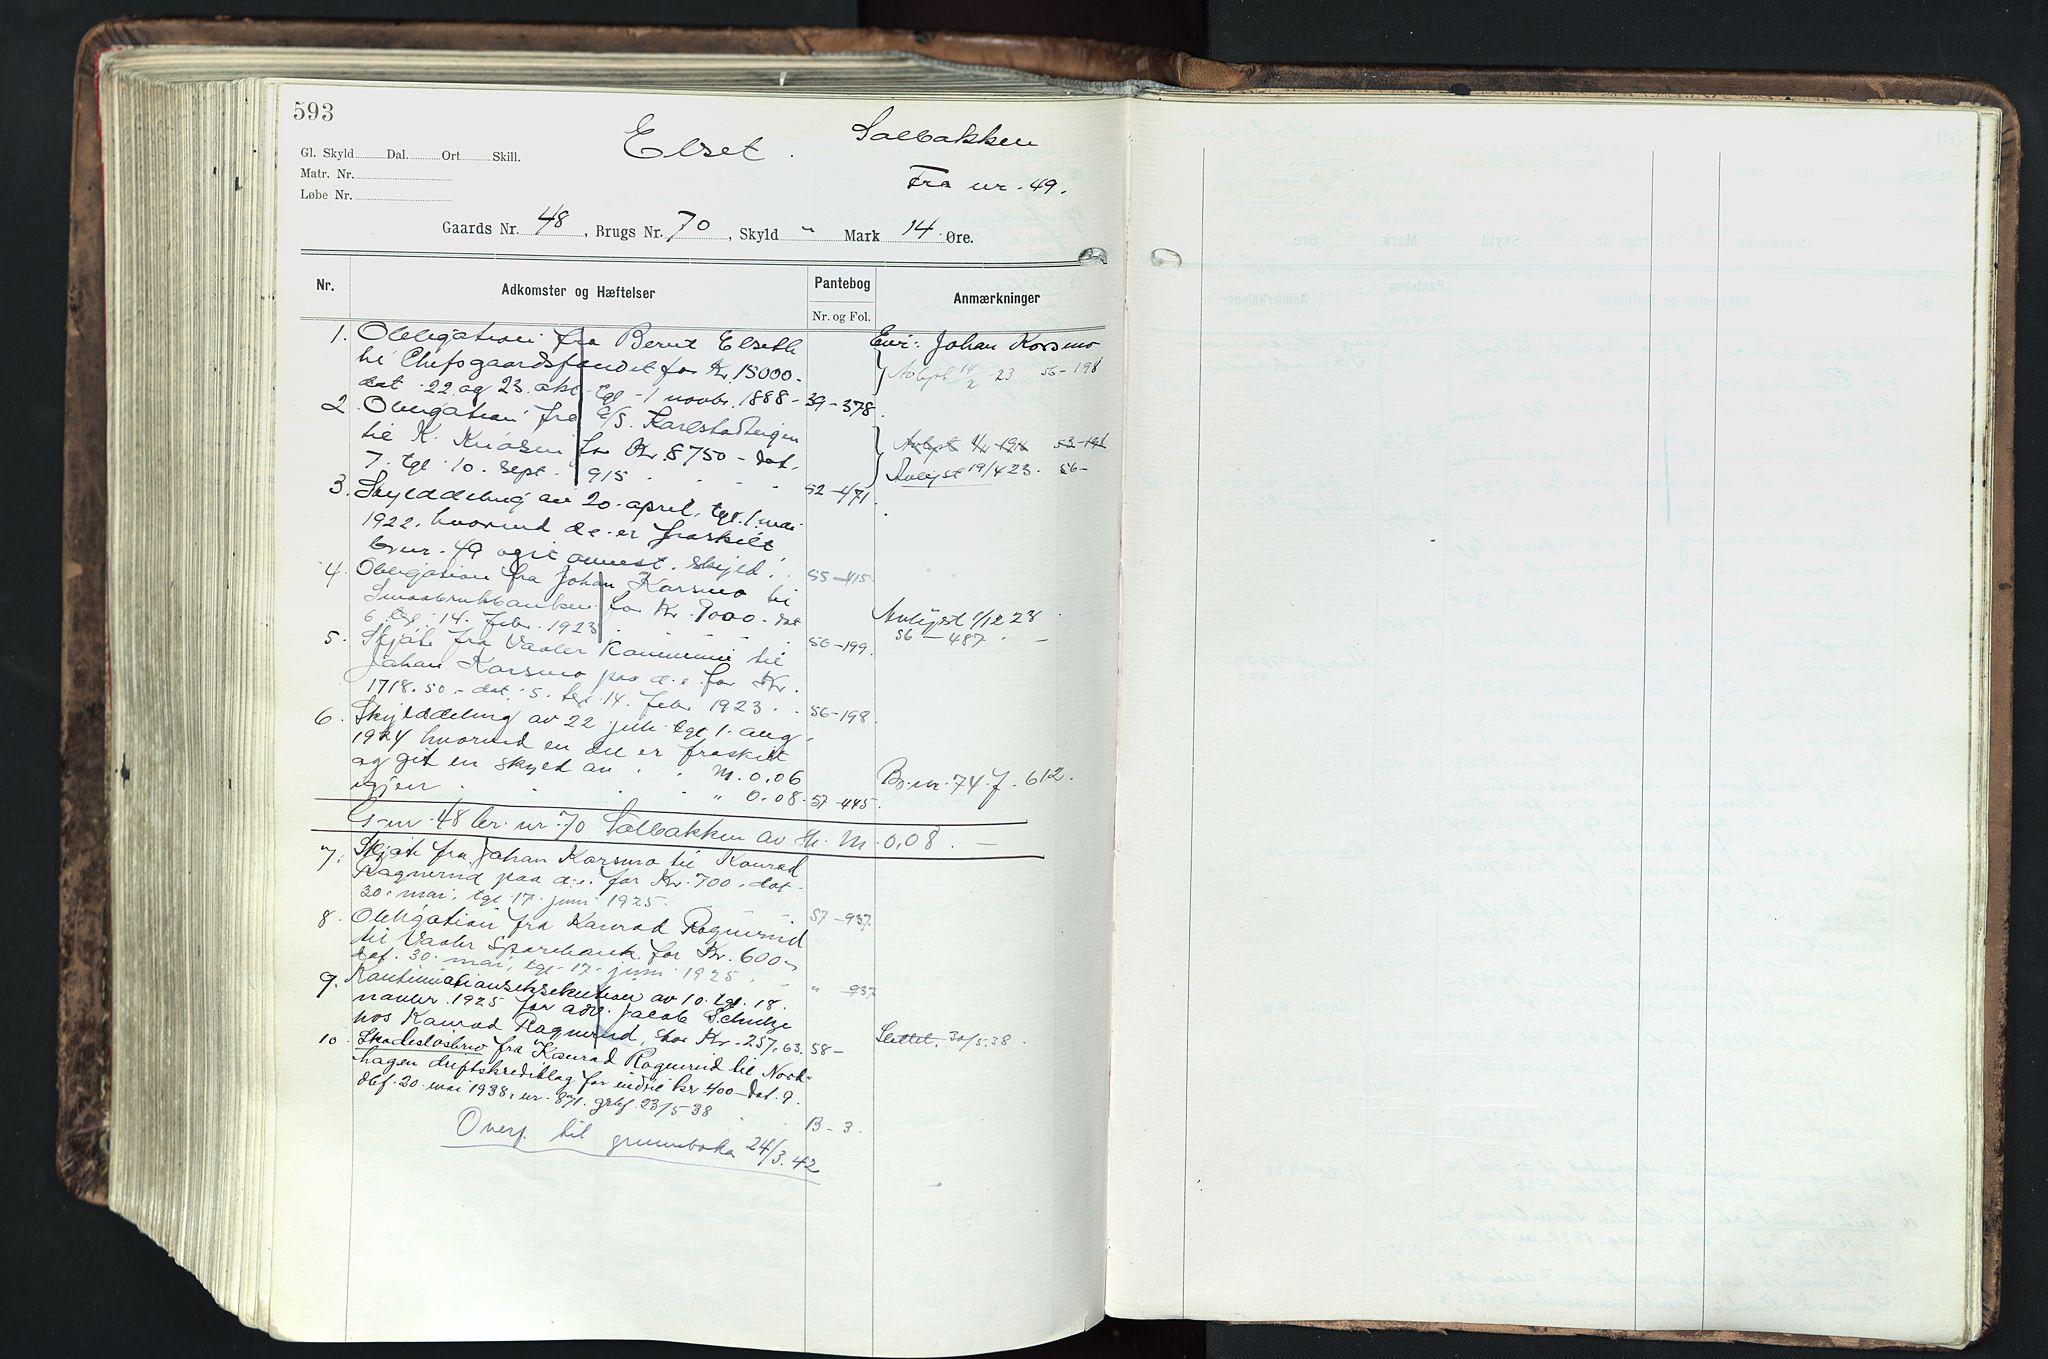 593
Elset. Solbakken
Gl. Skyld Dal. Ort Skill.
Matr. Nr.
Fra nr. 49.
Løbe Nr.
Gaards Nr. 48, Brugs Nr. 70, Skyld " Mark 14 Øre.
Nr. Adkomster og Hæftelser Pantebog Anmærkninger
Nr. og Fol.
1. Obligation fra Bernt Elseth Eier: Johan Korsmo
til Chefsgaardsfondet for Kr. 15000- Avlyst 14/2 23 56-198
dat. 22 og 23. okt. tgl. 1 novbr. 1888- 39-378.
2. Obligation fra A/S. Karlstadbergen
til K. Knosen for Kr. 8750- dat. Avlyst 53-191
7. tgl. 10. sept. 915 Avlyst 19/4 23. 56-
52-471.
3. Skylddeling av 20. april, tgl. 1. mai
1922, hvorved d.e. er fraskilt
br.nr. 49 og git anmst. skyld.
55-415.
4. Obligation fra Johan Korsmo til
Smaabrukbanken for Kr. 9000- dat. Avlyst 1/12 28
6. tgl. 14. febr. 1923. 56-487
56-199.
5. Skjøte fra Vaaler Kommune til
Johan Korsmo paa d.e. for Kr.
1718.50.- dat. 5. tgl. 14. febr. 1923.
56-198
6. Skylddeling av 22 juli tgl. 1. aug.
1924 hvorved en del er fraskilt
og git en skyld av M. 0.06 Br. nr. 74. f. 612.
igjen " 0.08. 57-445.
G.nr. 48 br. nr. 70 Solbakken av sk. M. 0,08.
7. Skjøte fra Johan Korsmo til Konrad
Rognerud paa d.e. for Kr. 700. dat.
30. mai, tgl. 17. juni 1925.
57-937.
8. Obligation fra Konrad Rognerud
til Vaaler Sparebank for Kr. 600-
dat. 30. mai, tgl. 17. juni 1925.
" 937
9. Kontinuationseksekution av 10. tgl. 18.
novbr. 1925 for adv. Jacob Schulze
hos Konrad Rognerud, stor Kr. 257,63. 58- Slettet. 30/5.38.
10. Skadesløsbrev fra Konrad Rognerud til Nord-
hagen driftskreditlag for indtil kr. 400- Dat. 9.
dbf. 20. mai 1938, nr. 871. grbf. 23/5-38
B-3.
Overf. til grunnboka 24/3.42